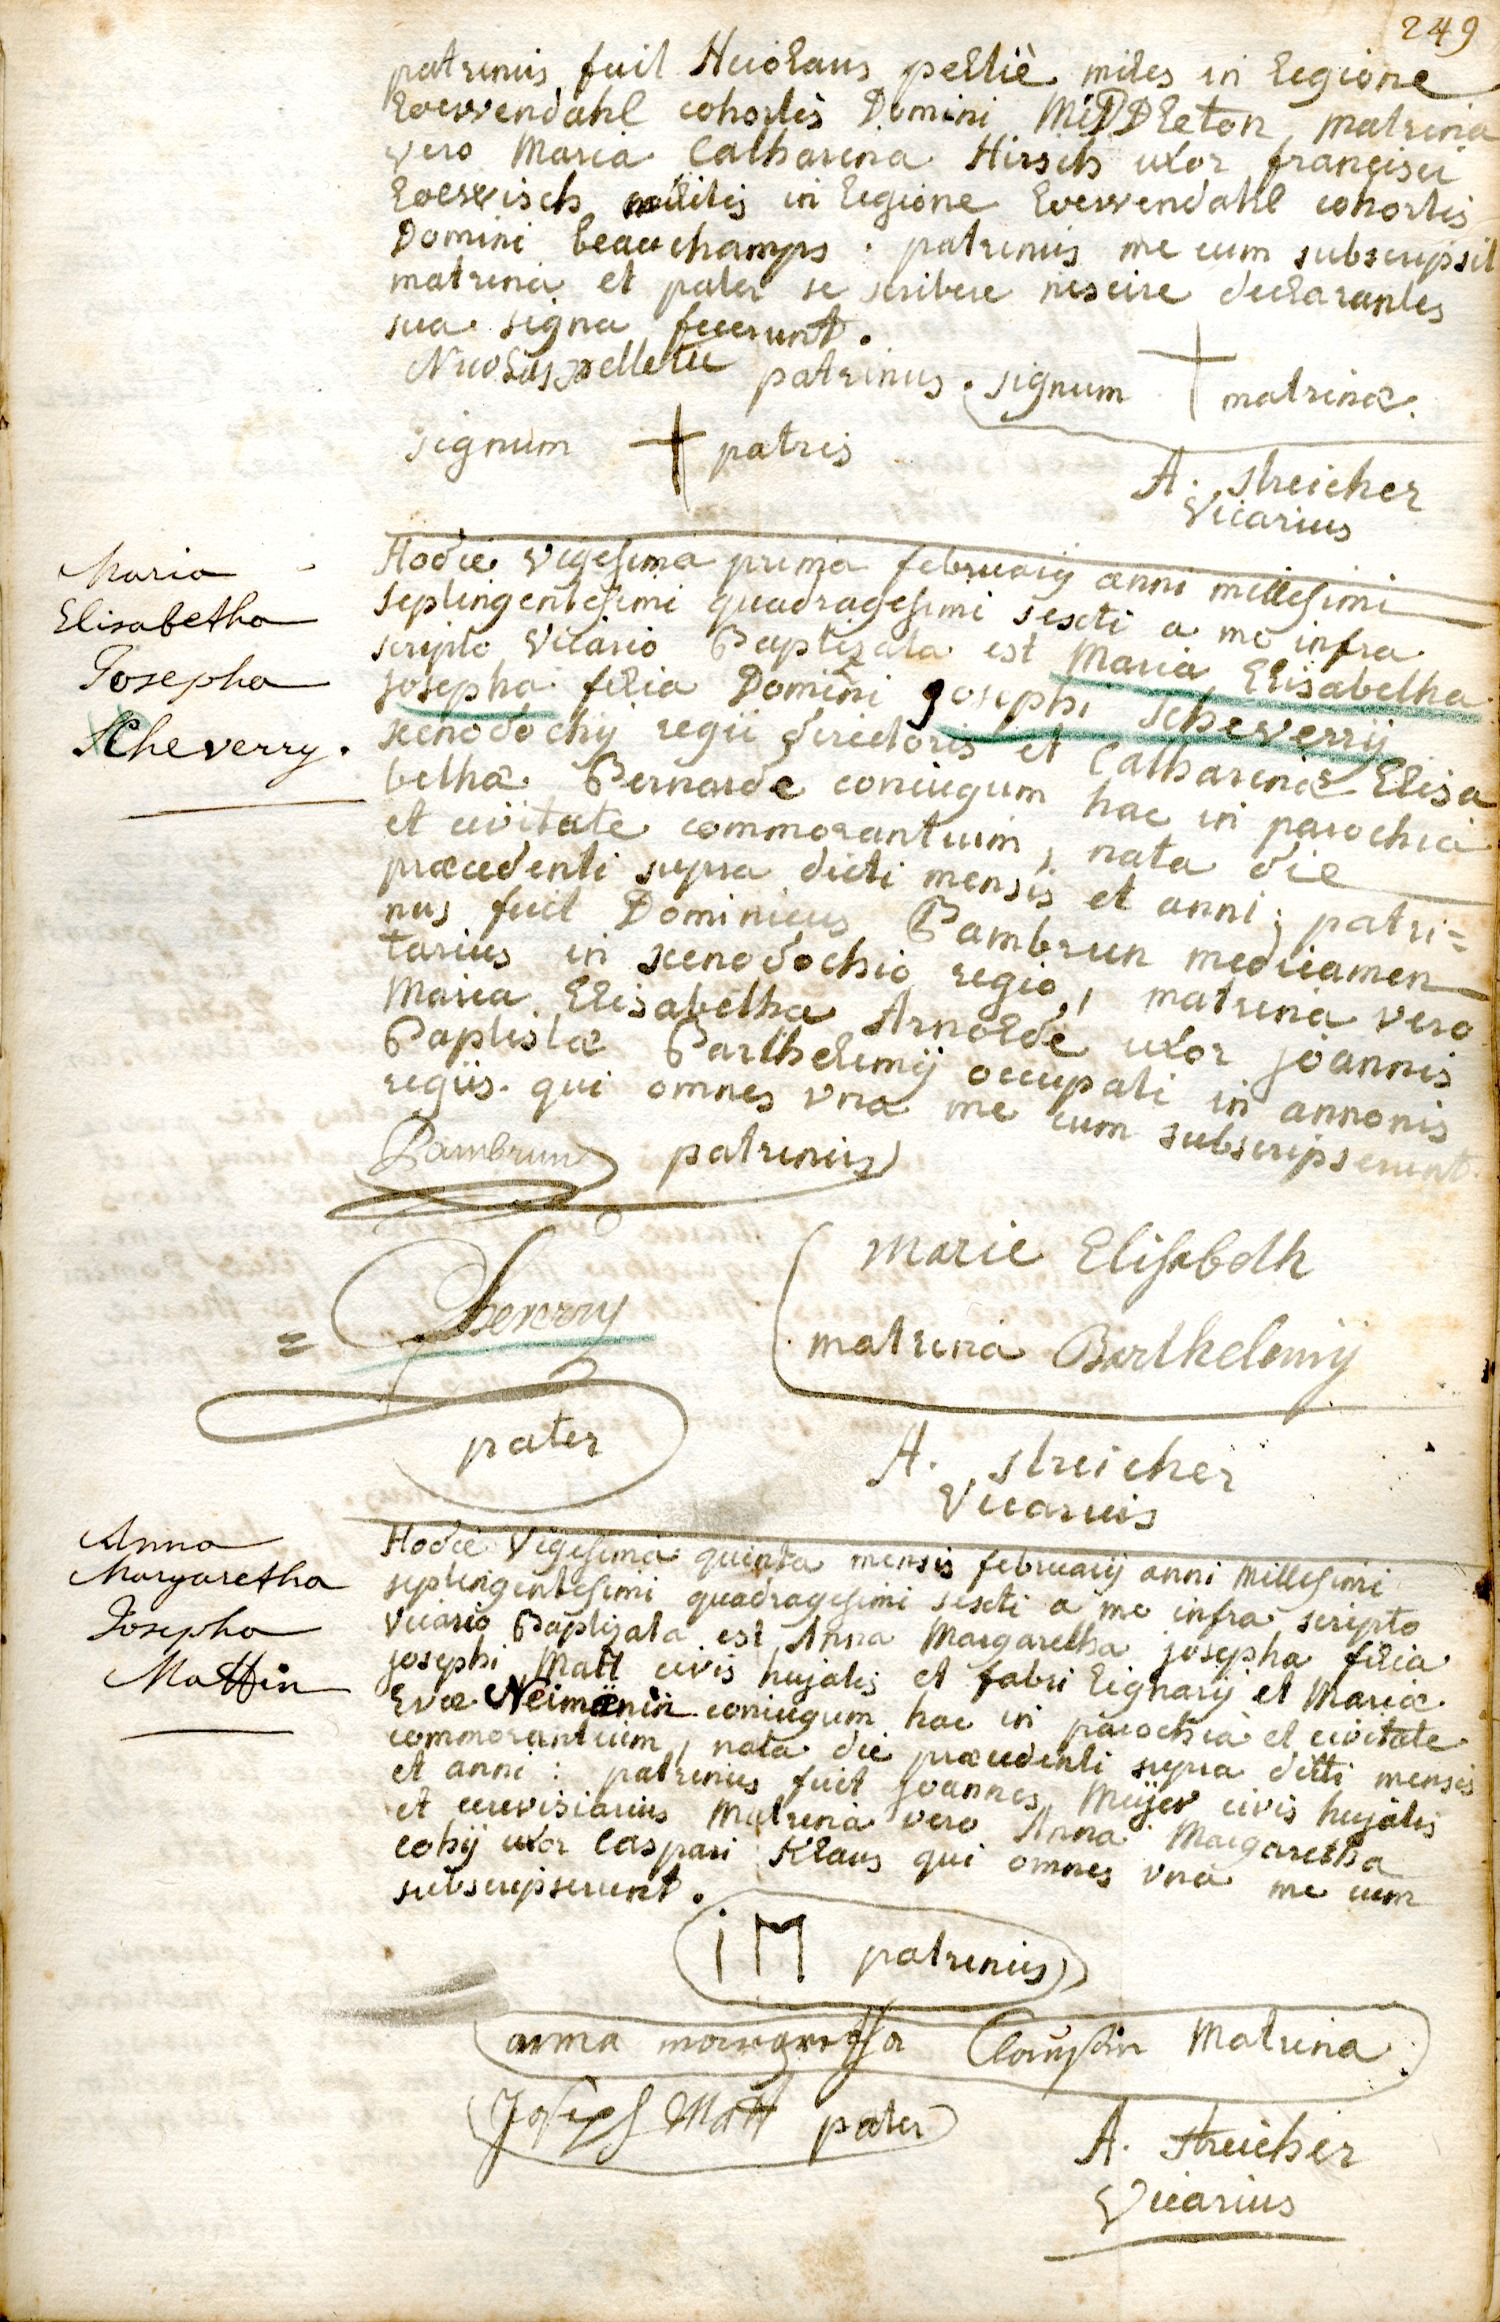 249
patrinus fuit Nicolaus pelliè miles in legione
Loewendahl cohortis Domini MiDDleton, matrina
vero Maria Catharina Hirsch uxor francisci
militis in legione Loewendahl cohortis
Domini beauchamps. patrinus me cum subscripsit
matrina et pater se scribere nescire declarantes
sua signa fecerunt.
Nicolas pelletie patrinus. signum + matrinæ.
signum + patris
A. Streicher
Vicarius
Maria
Elisabetha
Josepha
Scheverry.
Hodie vigesima prima februarij anni millesimi
septingentesimi quadragesimi sexti a me infra
scripto vicario Baptizata est Maria Elisabetha
josepha filia Domini josephi Scheverrij
xenodochij regii directoris et Catharinæ Elisa
bethæ Bernarde coniugum hac in parochia
et civitate commorantium, nata die
præcedenti supra dicti mensis et anni; patri=
nus fuit Dominicus Pambrun medicamen
tarius in xenodochio regio, matrina vero
Maria Elisabetha Arnolde uxor joannis
Baptistæ Barthelemij occupati in annonis
regiis. qui omnes vna me cum subscripserunt.
Pambrun patrinus
Marie Elisabeth
matrina Barthelemij
= Scheverry
pater
A. Streicher
Vicarius
Anna
Margaretha
Josepha
Mattin
Hodie vigesima quinta mensis februarij anni Millesimi
septingentesimi quadragesimi sexti a me infra scripto
vicario Baptizata est Anna Margaretha josepha filia
josephi Matt civis hujatis et fabri lignarij et Mariæ
Evæ Neimänin coniugum hac in parochia et civitate
commorantium, nata die præcedenti supra dicti mensis
et anni: patrinus fuit joannes Meijer civis hujatis
et cerevisiarius Matrina vero Anna Margaretha
cohij uxor Caspari Klaus qui omnes vna me cum
subscripserunt.
iM patrinus
anna margretha Clausin Matrina
Joseph Matt pater
A. Streicher
Vicarius